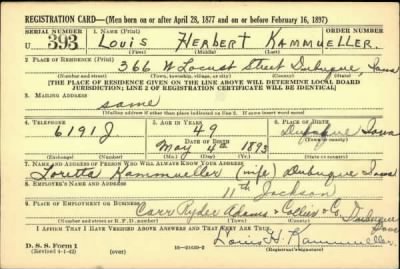 REGISTRATION CARD—(Men born on or after April 28, 1877 and on or before February 16, 1897)
SERIAL NUMBER 1. NAME (Print)
U 393 Louis Herbert Kammueller.
(First) (Middle) (Last)
2. PLACE OF RESIDENCE (Print)
366 W Locust Street Dubuque, Iowa
(Number and street) (Town, township, village, or city) (County) (State)
[THE PLACE OF RESIDENCE GIVEN ON THE LINE ABOVE WILL DETERMINE LOCAL BOARD
JURISDICTION; LINE 2 OF REGISTRATION CERTIFICATE WILL BE IDENTICAL]
3. MAILING ADDRESS
same
[Mailing address if other than place indicated on line 2. If same insert word same]
4. TELEPHONE 5. AGE IN YEARS 6. PLACE OF BIRTH
6191 J 49 Dubuque
DATE OF BIRTH (Town or county)
May 4th 1893 Iowa
(Exchange) (Number) (Mo.) (Day) (Yr.) (State or country)
7. NAME AND ADDRESS OF PERSON WHO WILL ALWAYS KNOW YOUR ADDRESS
Loretta Kammueller (wife) Dubuque Iowa
8. EMPLOYER'S NAME AND ADDRESS
11th Jackson
9. PLACE OF EMPLOYMENT OR BUSINESS
Carr Ryder Adams & Collier & Co. Dubuque Iowa
(Number and street or R. F. D. number) (Town) (County) (State)
I AFFIRM THAT I HAVE VERIFIED ABOVE ANSWERS AND THAT THEY ARE TRUE.
Louis H. Kammueller.
D. S. S. Form 1
(Revised 4-1-42) (over) 16—21630-2 (Registrant's signature)